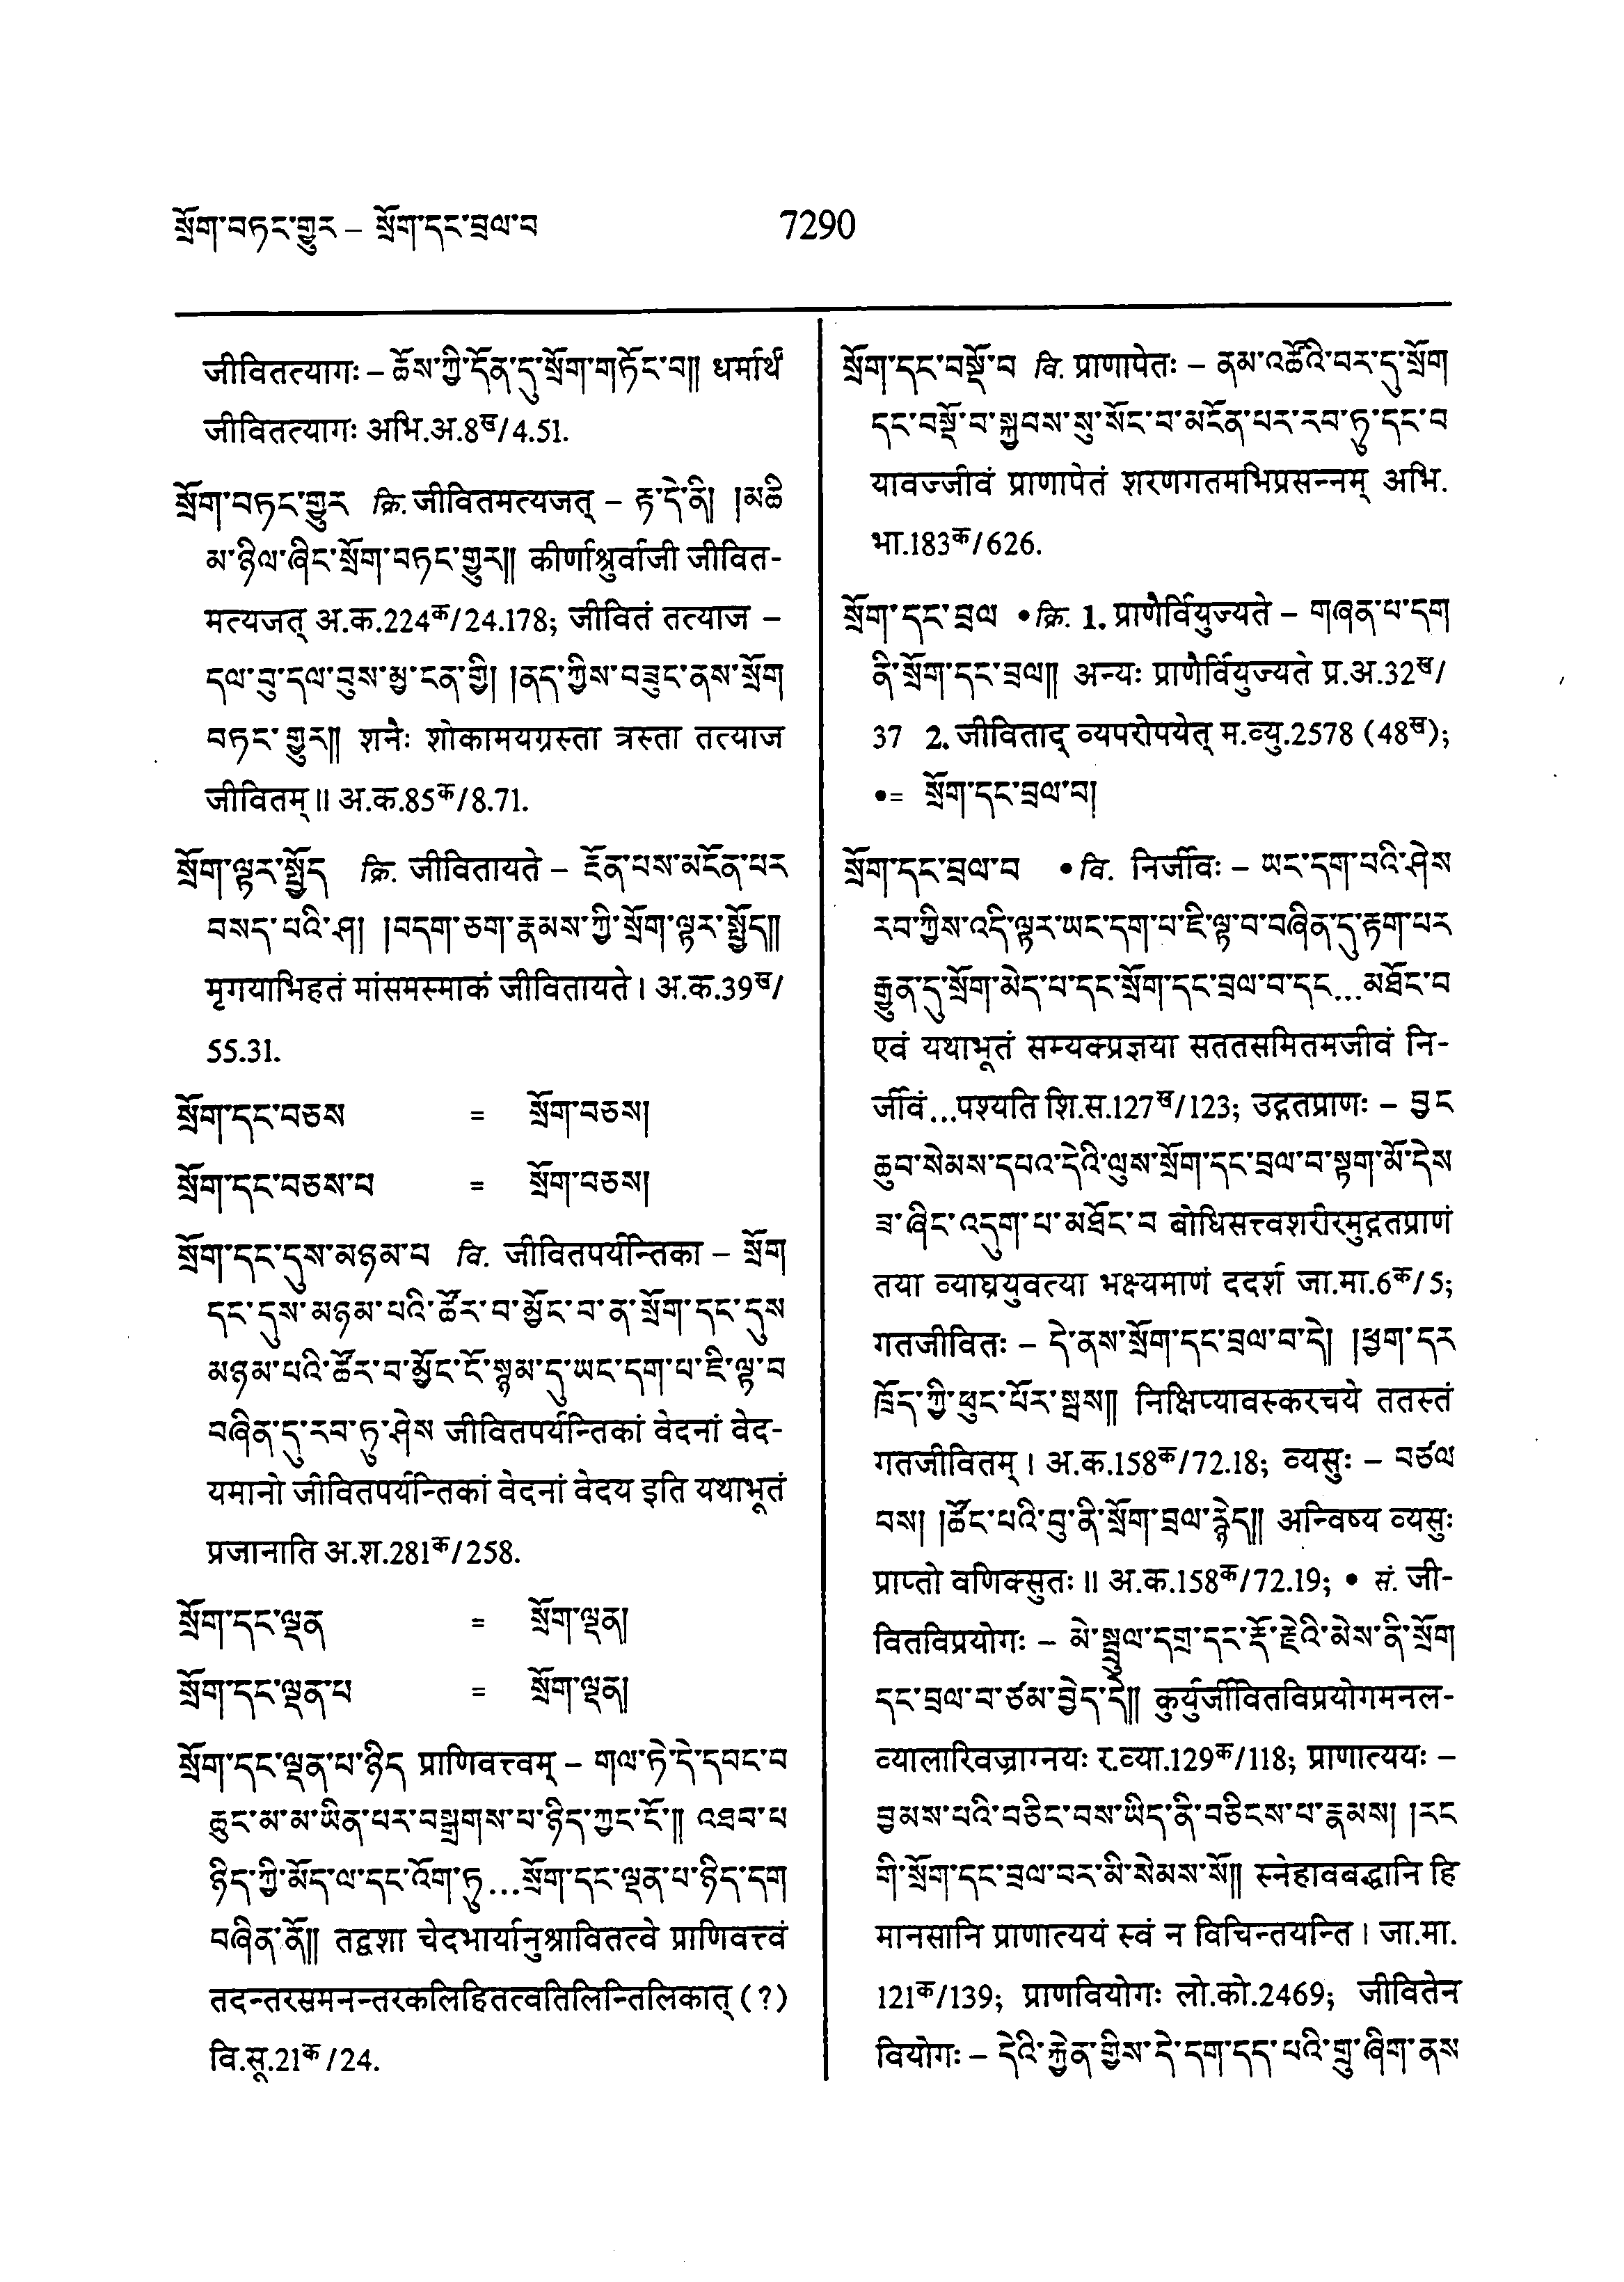 སྲོག་བཏང་གྱུར – སྲོག་དང་བྲལ་བ
7290
जीवितत्यागः – ཆོས་ཀྱི་དོན་དུ་སྲོག་གཏོང་བ།། धर्मार्थं
जीवितत्यागः अभि.अ.8ख/4.51.
སྲོག་བཏང་གྱུར क्रि. जीवितमत्यजत् – རྟ་དེ་ནི། །མཆི
མ་ཉིལ་ཞིང་སྲོག་བཏང་གྱུར།། कीर्णाश्रुर्वाजी जीवित-
मत्यजत् अ.क.224क/24.178; जीवितं तत्याज –
དལ་བུ་དལ་བུས་མྱ་ངན་གྱི། །ནད་ཀྱིས་བཟུང་ནས་སྲོག
བཏང་གྱུར།། शनैः शोकामयग्रस्ता त्रस्ता तत्याज
जीवितम्॥ अ.क.85क/8.71.
སྲོག་ལྟར་སྤྱོད क्रि. जीवितायते – རྔོན་པས་མངོན་པར
བསད་པའི་ཤ། །བདག་ཅག་རྣམས་ཀྱི་སྲོག་ལྟར་སྤྱོད།།
मृगयाभिहतं मांसमस्माकं जीवितायते। अ.क.39ख/
55.31.
སྲོག་དང་བཅས = སྲོག་བཅས།
སྲོག་དང་བཅས་པ = སྲོག་བཅས།
སྲོག་དང་དུས་མཉམ་པ वि. जीवितपर्यन्तिका – སྲོག
དང་དུས་མཉམ་པའི་ཚོར་བ་མྱོང་བ་ན་སྲོག་དང་དུས
མཉམ་པའི་ཚོར་བ་མྱོང་ངོ་སྙམ་དུ་ཡང་དག་པ་ཇི་ལྟ་བ
བཞིན་དུ་རབ་ཏུ་ཤེས जीवितपर्यन्तिकां वेदनां वेद-
यमानो जीवितपर्यन्तिकां वेदनां वेदय इति यथाभूतं
प्रजानाति अ.श.281क/258.
སྲོག་དང་ལྡན = སྲོག་ལྡན།
སྲོག་དང་ལྡན་པ = སྲོག་ལྡན།
སྲོག་དང་ལྡན་པ་ཉིད प्राणिवत्त्वम् – གལ་ཏེ་དེ་དབང་བ
ཆུང་མ་མ་ཡིན་པར་བསྒྲགས་པ་ཉིད་ཀྱང་ངོ་།། འཐབ་པ
ཉིད་ཀྱི་མོད་ལ་དང་འོག་ཏུ...སྲོག་དང་ལྡན་པ་ཉིད་དག
བཞིན་ནོ།། तद्वशा चेदभार्यानुश्रावितत्वे प्राणिवत्त्वं
तदन्तरसमनन्तरकलिहितत्वतिलिन्तिलिकात् (?)
वि.सू.21क/24.
སྲོག་དང་བསྡོ་བ वि. प्राणापेतः – ནམ་འཚོའི་བར་དུ་སྲོག
དང་བསྡོ་བ་སྐྱབས་སུ་སོང་བ་མངོན་པར་རབ་ཏུ་དང་བ
यावज्जीवं प्राणापेतं शरणगतमभिप्रसन्नम् अभि.
भा.183क/626.
སྲོག་དང་བྲལ •क्रि. 1. प्राणैर्वियुज्यते – གཞན་པ་དག
ནི་སྲོག་དང་བྲལ།། अन्यः प्राणैर्वियुज्यते प्र.अ.32ख/
37 2. जीविताद् व्यपरोपयेत् म.व्यु.2578 (48ख);
•= སྲོག་དང་བྲལ་བ།
སྲོག་དང་བྲལ་བ •वि. निर्जीवः – ཡང་དག་པའི་ཤེས
རབ་ཀྱིས་འདི་ལྟར་ཡང་དག་པ་ཇི་ལྟ་བ་བཞིན་དུ་རྟག་པར
རྒྱུན་དུ་སྲོག་མེད་པ་དང་སྲོག་དང་བྲལ་བ་དང...མཐོང་བ
एवं यथाभूतं सम्यक्प्रज्ञया सततसमितमजीवं नि-
र्जीवं...पश्यति शि.स.127ख/123; उद्गतप्राणः – བྱང
ཆུབ་སེམས་དཔའ་དེའི་ལུས་སྲོག་དང་བྲལ་བ་སྟག་མོ་དེས
ཟ་ཞིང་འདུག་པ་མཐོང་བ बोधिसत्त्वशरीरमुद्गतप्राणं
तया व्याघ्रयुवत्या भक्ष्यमाणं ददर्श जा.मा.6क/5;
गतजीवितः – དེ་ནས་སྲོག་དང་བྲལ་བ་དེ། །ཕྱག་དར
ཁྲོད་ཀྱི་ཕུང་པོར་སྦས།། निक्षिप्यावस्करचये ततस्तं
गतजीवितम्। अ.क.158क/72.18; व्यसुः – བཙལ
བས། །ཚོང་པའི་བུ་ནི་སྲོག་བྲལ་རྙེད།། अन्विष्य व्यसुः
प्राप्तो वणिक्सुतः॥ अ.क.158क/72.19; • सं. जी-
वितविप्रयोगः – མེ་སྦྲུལ་དགྲ་དང་རྡོ་རྗེའི་མེས་ནི་སྲོག
དང་བྲལ་བ་ཙམ་བྱེད་དེ།། कुर्युर्जीवितविप्रयोगमनल-
व्यालारिवज्राग्नयः र.व्या.129क/118; प्राणात्ययः –
བྱམས་པའི་བཅིང་བས་ཡིད་ནི་བཅིངས་པ་རྣམས། །རང
གི་སྲོག་དང་བྲལ་བར་མི་སེམས་སོ།། स्नेहावबद्धानि हि
मानसानि प्राणात्ययं स्वं न विचिन्तयन्ति। जा.मा.
121क/139; प्राणवियोगः लो.को.2469; जीवितेन
वियोगः – དེའི་རྐྱེན་གྱིས་དེ་དག་དད་པའི་གྲུ་ཞིག་ནས